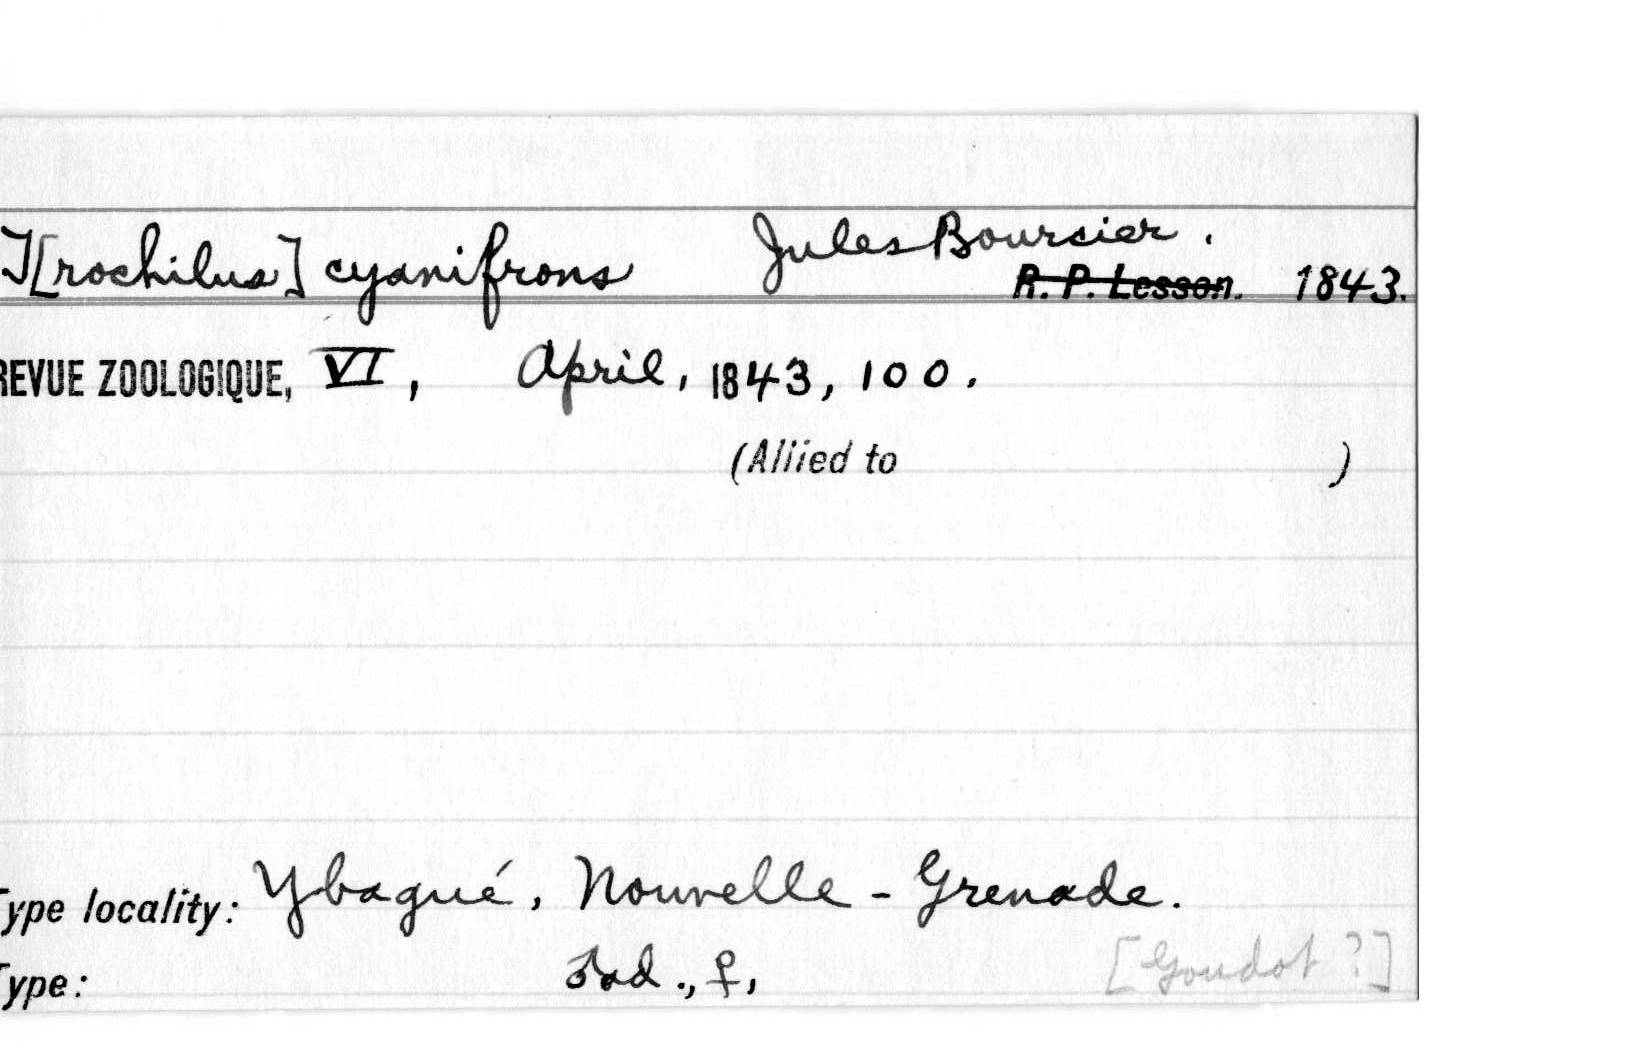 T[rochilus] cyanifrons Jules Boursier.
R. P. Lesson. 1843.
REVUE ZOOLOGIQUE, VI, April, 1843, 100.
(Allied to )
Type locality: Ybagué, Nouvelle-Grenade.
Type: ♂ad., ♀, [Goudot ?]